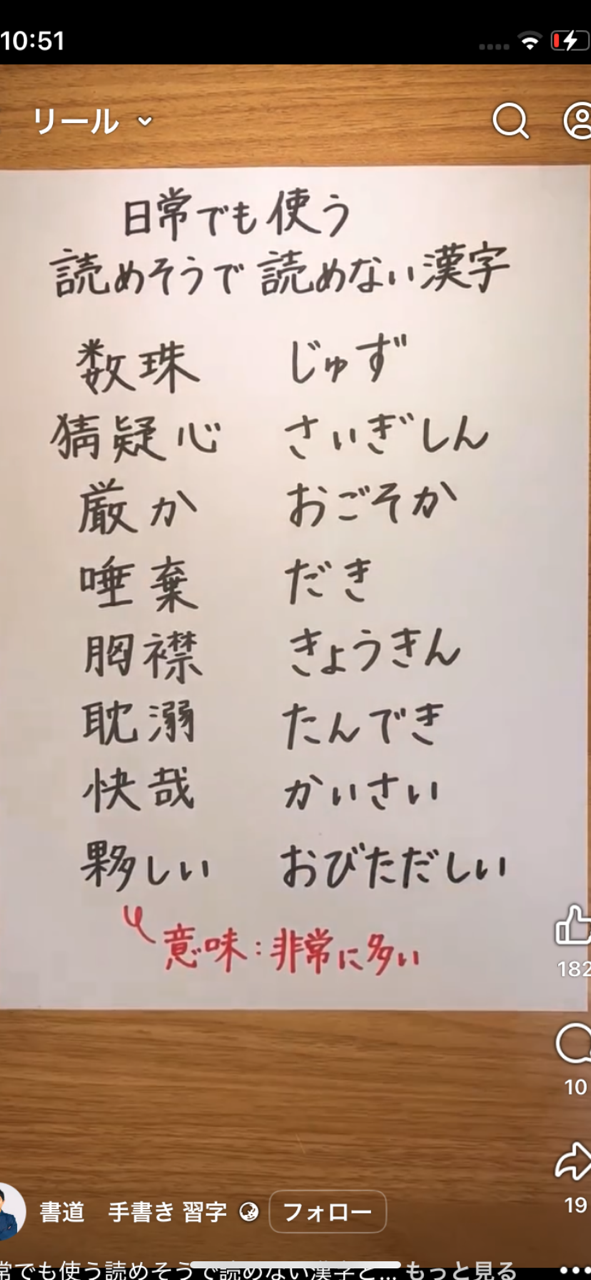 10:51
リール
日常でも使う
読めそうで読めない漢字
数珠 じゅず
猜疑心 さいぎしん
厳か おごそか
唾棄 だき
胸襟 きょうきん
耽溺 たんでき
快哉 かいさい
夥しい おびただしい
意味：非常に多い
182
10
19
書道 手書き 習字 フォロー
常でも使う読めそうで読めない漢字と... もっと見る